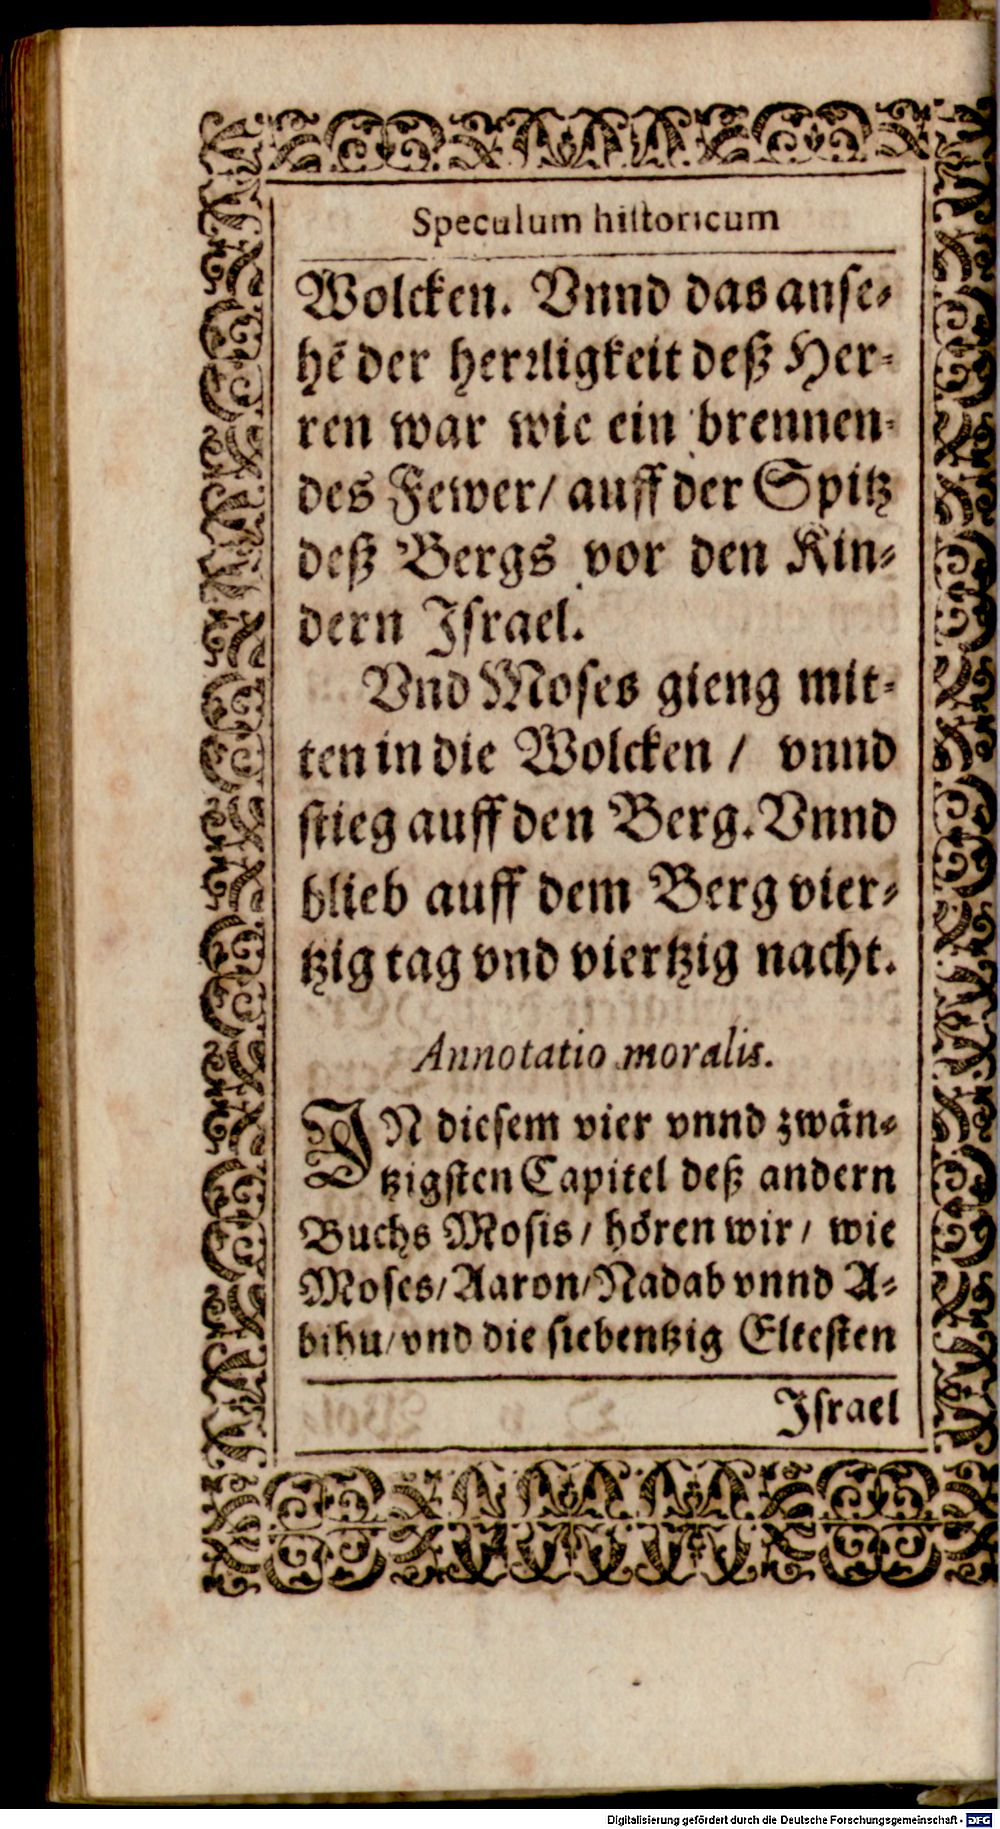 Speculum historicum
Wolcken. Vnnd das anse-
hē der herꝛligkeit deß Her-
ren war wie ein brennen-
des Fewer/ auff der Spitz
deß Bergs vor den Kin-
dern Israel.
Vnd Moses gieng mit-
ten in die Wolcken / vnnd
stieg auff den Berg. Vnnd
blieb auff dem Berg vier-
tzig tag vnd viertzig nacht.
Annotatio moralis.
IN diesem vier vnnd zwän-
tzigsten Capitel deß andern
Buchs Mosis / hören wir / wie
Moses/ Aaron/ Nadab vnnd A-
bihu/ vnd die siebentzig Eltesten
Israel
Digitalisierung gefördert durch die Deutsche Forschungsgemeinschaft - DFG